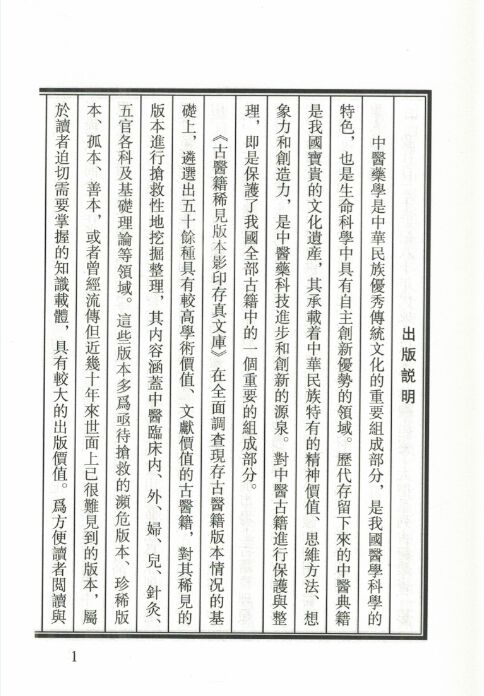 出版説明
中醫藥學是中華民族優秀傳統文化的重要組成部分，是我國醫學科學的
特色，也是生命科學中具有自主創新優勢的領域。歷代存留下來的中醫典籍
是我國寶貴的文化遺産，其承載着中華民族特有的精神價值、思維方法、想
象力和創造力，是中醫藥科技進步和創新的源泉。對中醫古籍進行保護與整
理，即是保護了我國全部古籍中的一個重要的組成部分。
《古醫籍稀見版本影印存真文庫》在全面調查現存古醫籍版本情况的基
礎上，遴選出五十餘種具有較高學術價值、文獻價值的古醫籍，對其稀見的
版本進行搶救性地挖掘整理，其内容涵蓋中醫臨床内、外、婦、兒、針灸、
五官各科及基礎理論等領域。這些版本多爲亟待搶救的瀕危版本、珍稀版
本、孤本、善本，或者曾經流傳但近幾十年來世面上已很難見到的版本，屬
於讀者迫切需要掌握的知識載體，具有較大的出版價值。爲方便讀者閲讀與
1